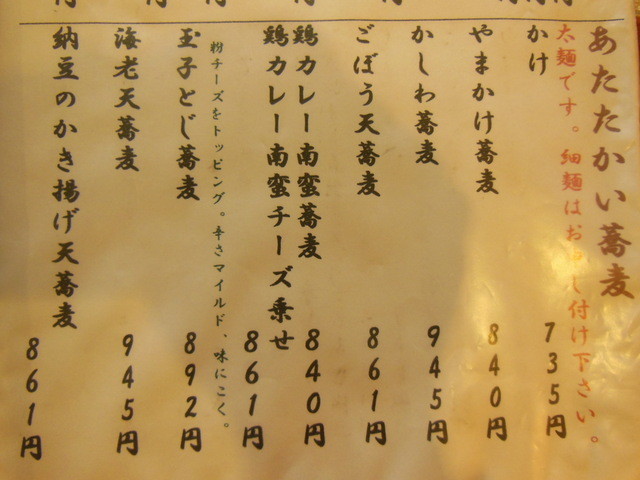 あたたかい蕎麦
太麺です。細麺はお申し付け下さい。
かけ 735円
やまかけ蕎麦 840円
かしわ蕎麦 945円
ごぼう天蕎麦 861円
鶏カレー南蛮蕎麦 840円
鶏カレー南蛮チーズ乗せ 861円
粉チーズをトッピング。辛さマイルド、味にこく。
玉子とじ蕎麦 892円
海老天蕎麦 945円
納豆のかき揚げ天蕎麦 861円